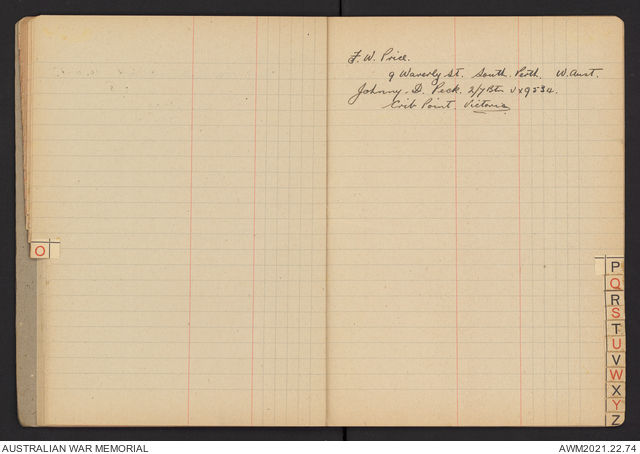 F. W. Price.
9 Waverly St. South. Perth. W. Aust.
Johnny. D. Peck. 2/7 Btn VX9534.
Crib Point. Victoria
O
P
Q
R
S
T
U
V
W
X
Y
Z
AUSTRALIAN WAR MEMORIAL
AWM2021.22.74